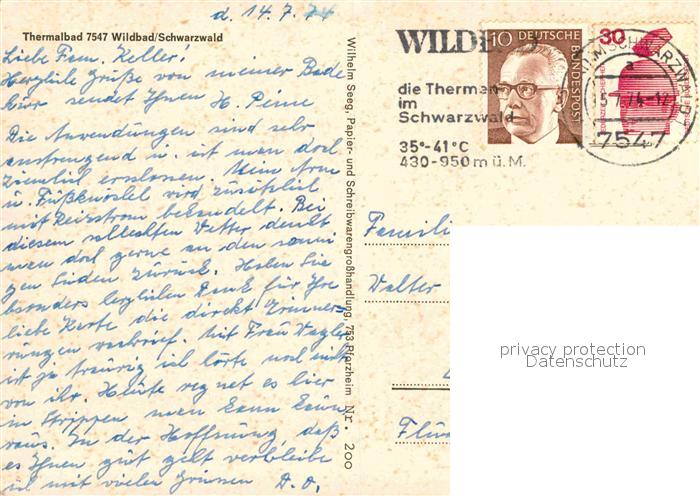 d. 14.7.74
Thermalbad 7547 Wildbad/Schwarzwald
Liebe Fam. Keller!
Herzliche Grüße von meiner Bade
kur sendet Ihnen H. Peine
Die Anwendungen sind sehr
anstrengend u. ist man doch
ziemlich erschossen. Mein Arm
u. Fußknöchel wird zusätzlich
mit Reizstrom behandelt. Bei
diesem schlechten Wetter denkt
man doch gerne an den sonni
gen Süden zurück. Haben Sie
besonders herzlichen Dank für Ihre
liebe Karte die direkt Erinner
rungen wachrief. Mit Frau
ist ja traurig ich hörte noch nichts
von ihr. Heute regnet es hier
in Strippen man kann kaum
raus. In der Hoffnung, daß
es Ihnen gut geht verbleibe
ich mit vielen Grüssen D. O.
Wilhelm Seeg, Papier- und Schreibwarengroßhandlung, 753 Pforzheim Nr. 200
WILDB
die Thermen
im
Schwarzwald
35°-41°C
430-950 m ü.M.
10 DEUTSCHE
BUNDESPOST
30
SCHWARZWALD
a
15.7.74-17
7547
Famili
Walter
Flu
privacy protection
Datenschutz